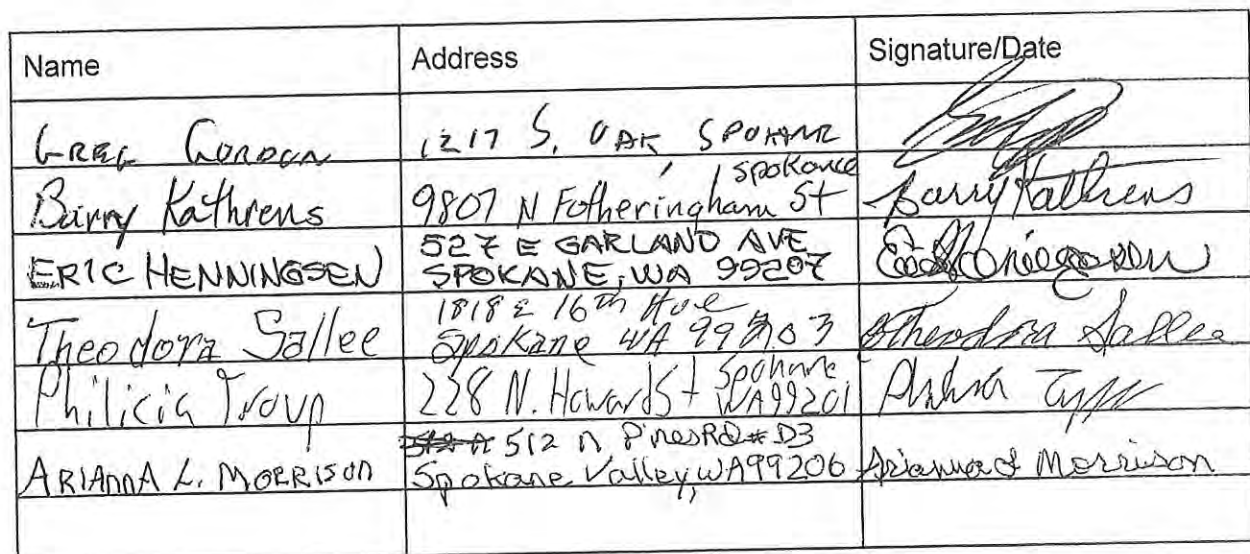 Name Address Signature/Date
GREG GORDON 1217 S. OAK SPOKANE
Barry Kathrens 9807 N Fotheringham St Spokane Barry Kathrens
ERIC HENNINGSEN 527 E GARLAND AVE
SPOKANE, WA 99207
Theodora Sallee 1818 E 16th Ave
Spokane WA 99203 Theodora Sallee
Philicia Troup 228 N. Howard St Spokane
WA 99201
ARIANNA L. MORRISON 512 N Pines Rd # D3
Spokane Valley, WA 99206 Arianna L Morrison